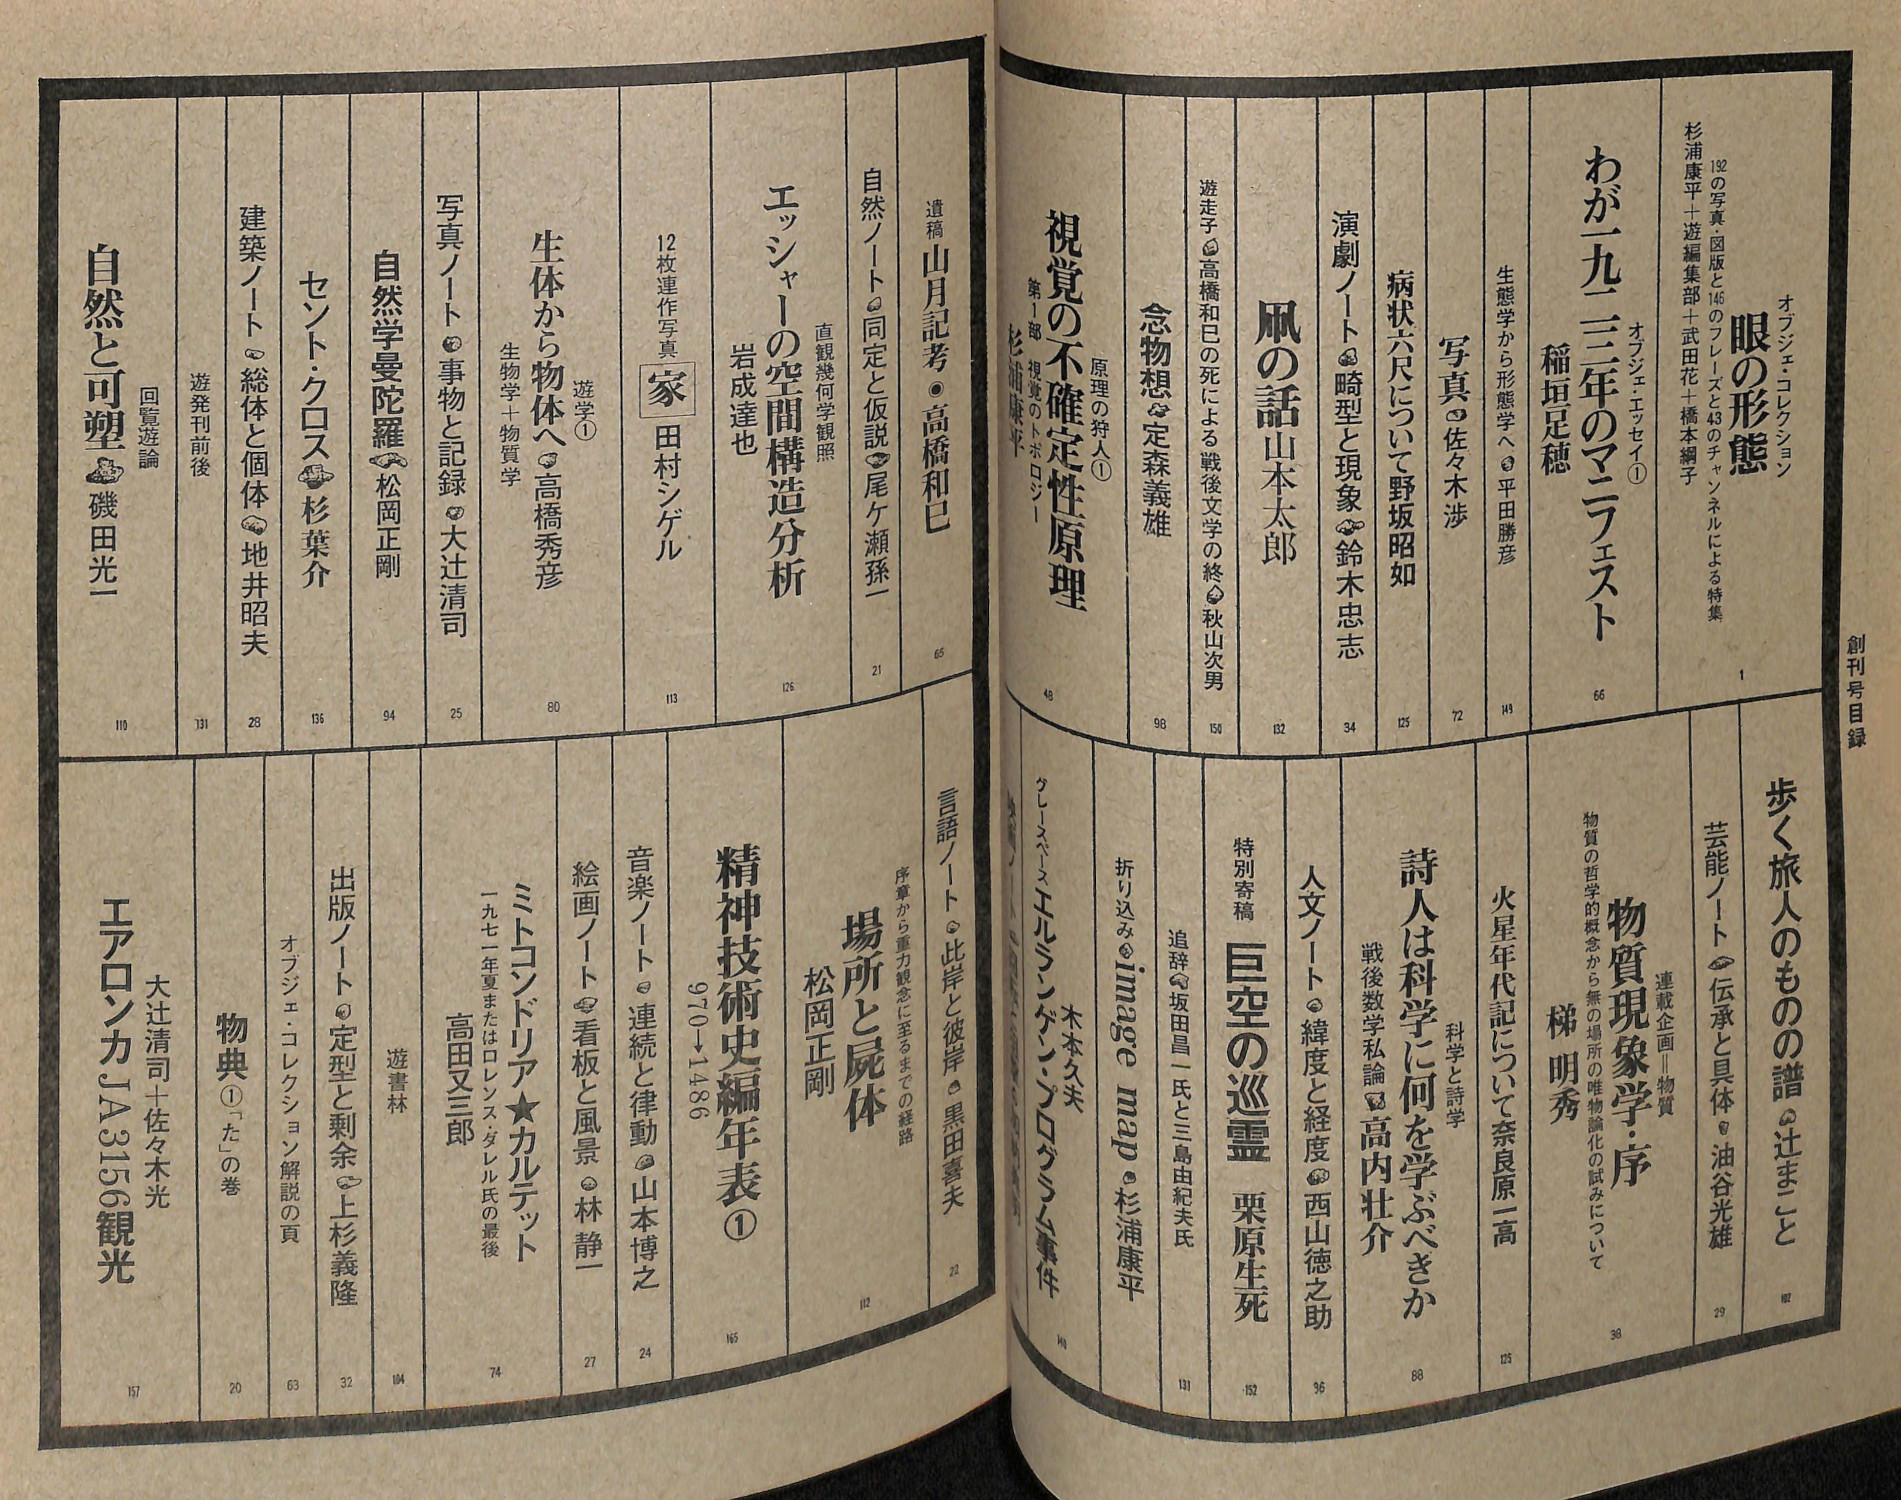 創刊号目録
オブジェ・コレクション
眼の形態
192の写真・図版と146のフレーズと43のチャンネルによる特集
杉浦康平＋遊編集部＋武田花＋橋本綱子
1
オブジェ・エッセイ①
わが一九二三年のマニフェスト
稲垣足穂
66
生態学から形態学へ 平田勝彦
149
写真 佐々木渉
72
病状六尺について 野坂昭如
125
演劇ノート 畸型と現象 鈴木忠志
34
凧の話 山本太郎
132
遊走子 高橋和巳の死による戦後文学の終 秋山次男
150
念物想 定森義雄
98
原理の狩人①
視覚の不確定性原理
第1部 視覚のトポロジー
杉浦康平
48
歩く旅人のものの譜 辻まこと
102
芸能ノート 伝承と具体 油谷光雄
29
連載企画＝物質
物質現象学・序
物質の哲学的概念から無の場所の唯物論化の試みについて
梯 明秀
38
火星年代記について 奈良原一高
125
科学と詩学
詩人は科学に何を学ぶべきか
戦後数学私論 高内壮介
88
人文ノート 緯度と経度 西山徳之助
36
特別寄稿 巨空の巡霊 栗原生死
152
追辞 坂田昌一氏と三島由紀夫氏
131
折り込み image map 杉浦康平
木本久夫
グレースペース エルランゲン・プログラム事件
140
遺稿 山月記考 高橋和巳
65
自然ノート 同定と仮説 尾ケ瀬孫一
21
直観幾何学観照
エッシャーの空間構造分析
岩成達也
126
12枚連作写真 家 田村シゲル
113
遊学①
生体から物体へ 高橋秀彦
生物学＋物質学
80
写真ノート 事物と記録 大辻清司
25
自然学曼陀羅 松岡正剛
94
セント・クロス 杉葉介
136
建築ノート 総体と個体 地井昭夫
28
遊発刊前後
131
回覧遊論
自然と可塑 磯田光一
110
言語ノート 此岸と彼岸 黒田喜夫
22
序章から重力観念に至るまでの経路
場所と屍体
松岡正剛
112
精神技術史編年表①
970→1486
165
音楽ノート 連続と律動 山本博之
24
絵画ノート 看板と風景 林 静一
27
ミトコンドリア★カルテット
一九七一年夏またはロレンス・ダレル氏の最後
高田又三郎
74
遊書林
104
出版ノート 定型と剰余 上杉義隆
32
オブジェ・コレクション解説の頁
63
物典①「た」の巻
20
大辻清司＋佐々木光
エアロンカJA3156観光
157